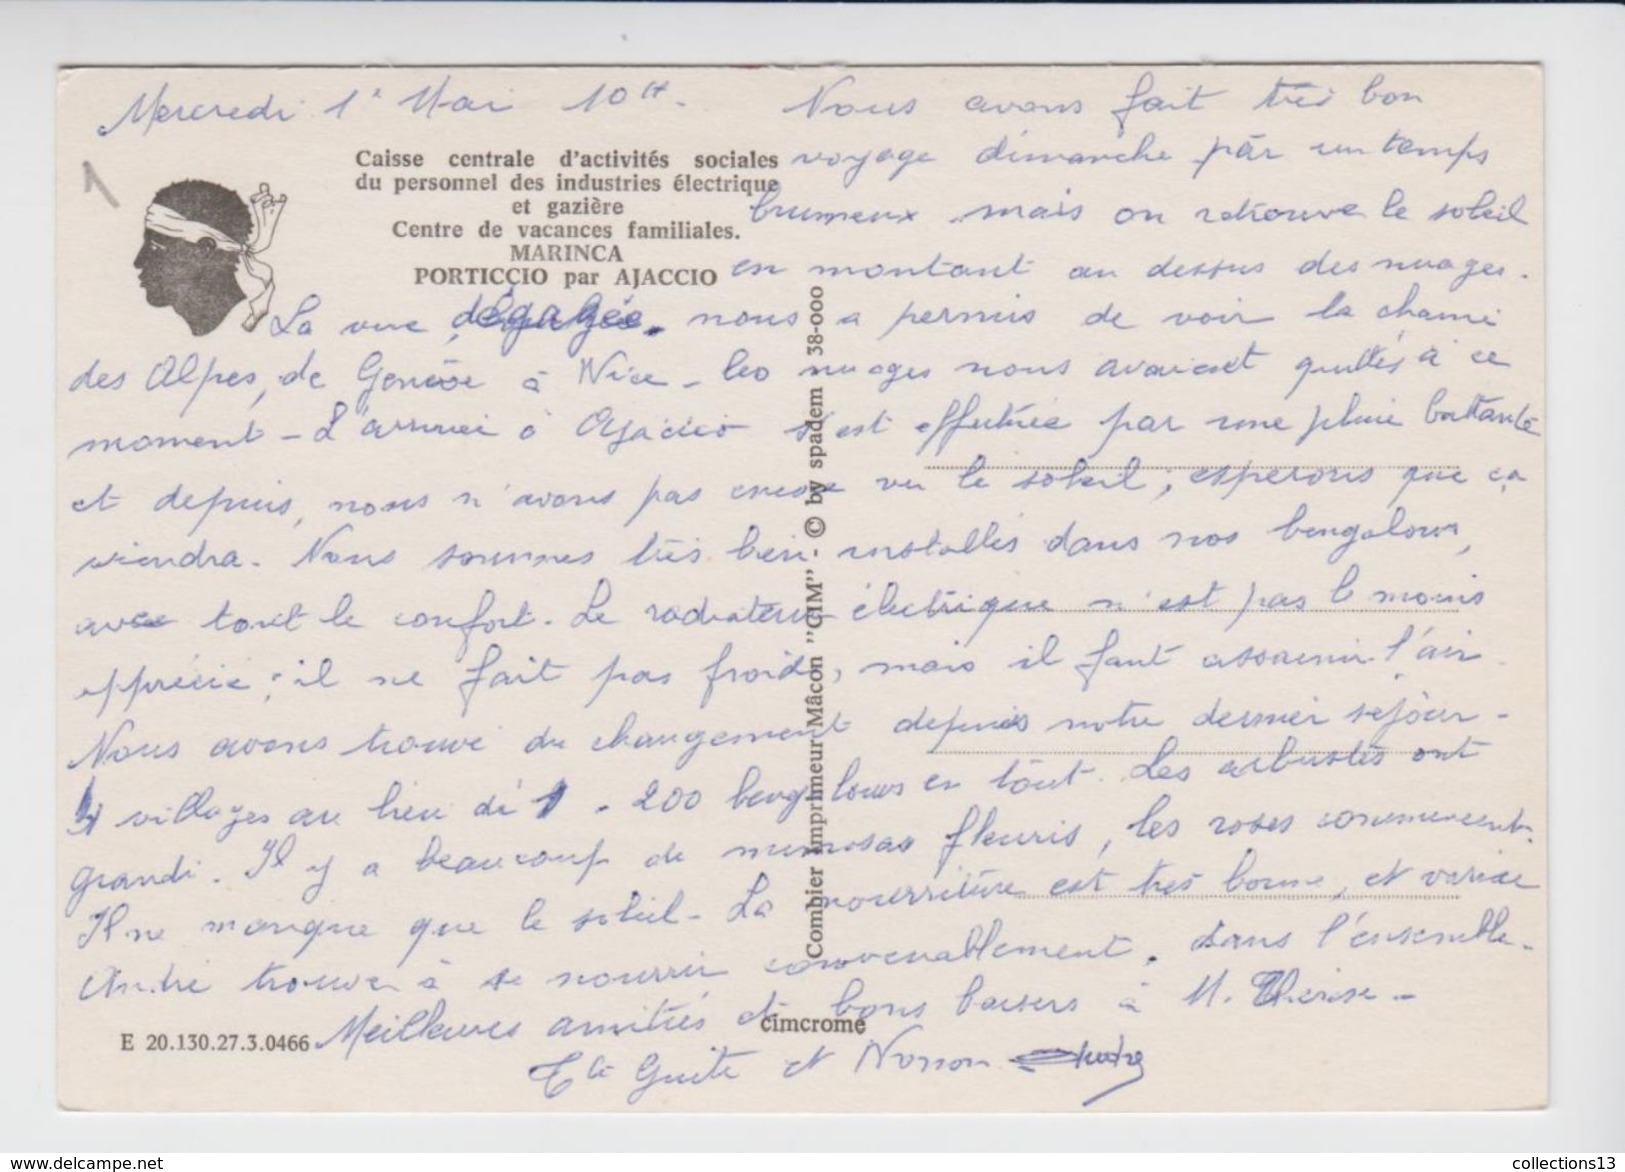 Mercredi 1er Mai 10H. Nous avons fait très bon
1
Caisse centrale d'activités sociales
du personnel des industries électrique
et gazière
Centre de vacances familiales.
MARINCA
PORTICCIO par AJACCIO
voyage dimanche par un temps
brumeux mais on retrouve le soleil
en montant au dessus des nuages.
La vue dégagée, nous a permis de voir la chaine
des Alpes, de Genève à Nice - les nuages nous avaient quittés à ce
moment - L'arrivée à Ajaccio s'est effectuée par une pluie battante
et depuis, nous n'avons pas encore vu le soleil ; esperons que ça
viendra. Nous sommes très bien installés dans nos bengalows,
avec tout le confort. Le radiateur électrique n'est pas le moins
apprécié ; il ne fait pas froid, mais il faut assainir l'air.
Nous avons trouvé du changement depuis notre dernier séjour -
villages au lieu de 1 - 200 bengalows en tout. Les arbustes ont
grandi. Il y a beaucoup de mimosas fleuris, les roses commencent.
Il ne manque que le soleil - La nourriture est très bonne, et variée
André trouve à se nourrir convenablement, dans l'ensemble -
Meilleures amitiés et bons baisers à M. Thérèse -
Tte Guite et Nonon André
Combier Imprimeur Mâcon "CIM". © by spadem 38-000
cimcrome
E 20.130.27.3.0466
delcampe.net
collections13